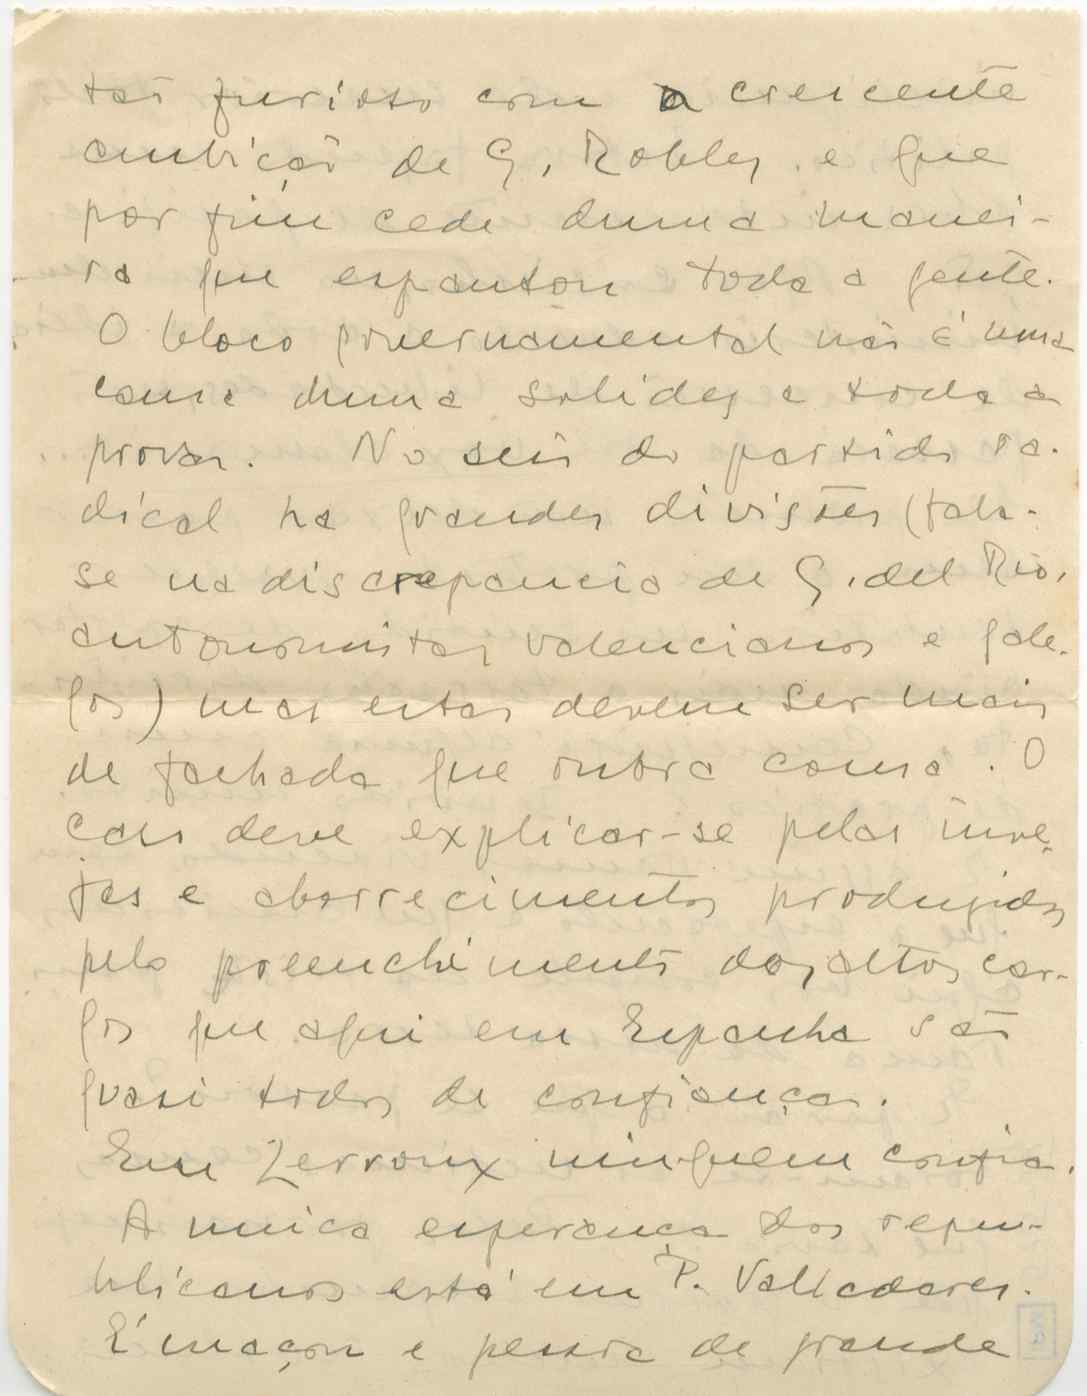 tão furioso com a crescente
ambição de G. Robles e que
por fim cede duma manei-
ra que espantou toda a gente.
O bloco governamental não é uma
cousa duma solidez a toda a
prova. No seio do partido ra-
dical ha grandes divisões (fala-
se na discrepancia de G. del Rio,
autonomistas valencianos e gale-
gos) mas estas devem ser mais
de fachada que outra cousa. O
caso deve explicar-se pelas inve-
jas e aborrecimentos produzidos
pelo preenchimento dos altos car-
gos que aqui em Espanha são
quasi todos de confiança.
Em Lerroux ninguem confia.
A unica esperança dos repu-
blicanos está em P. Valladares.
É maçon e pessoa de grande